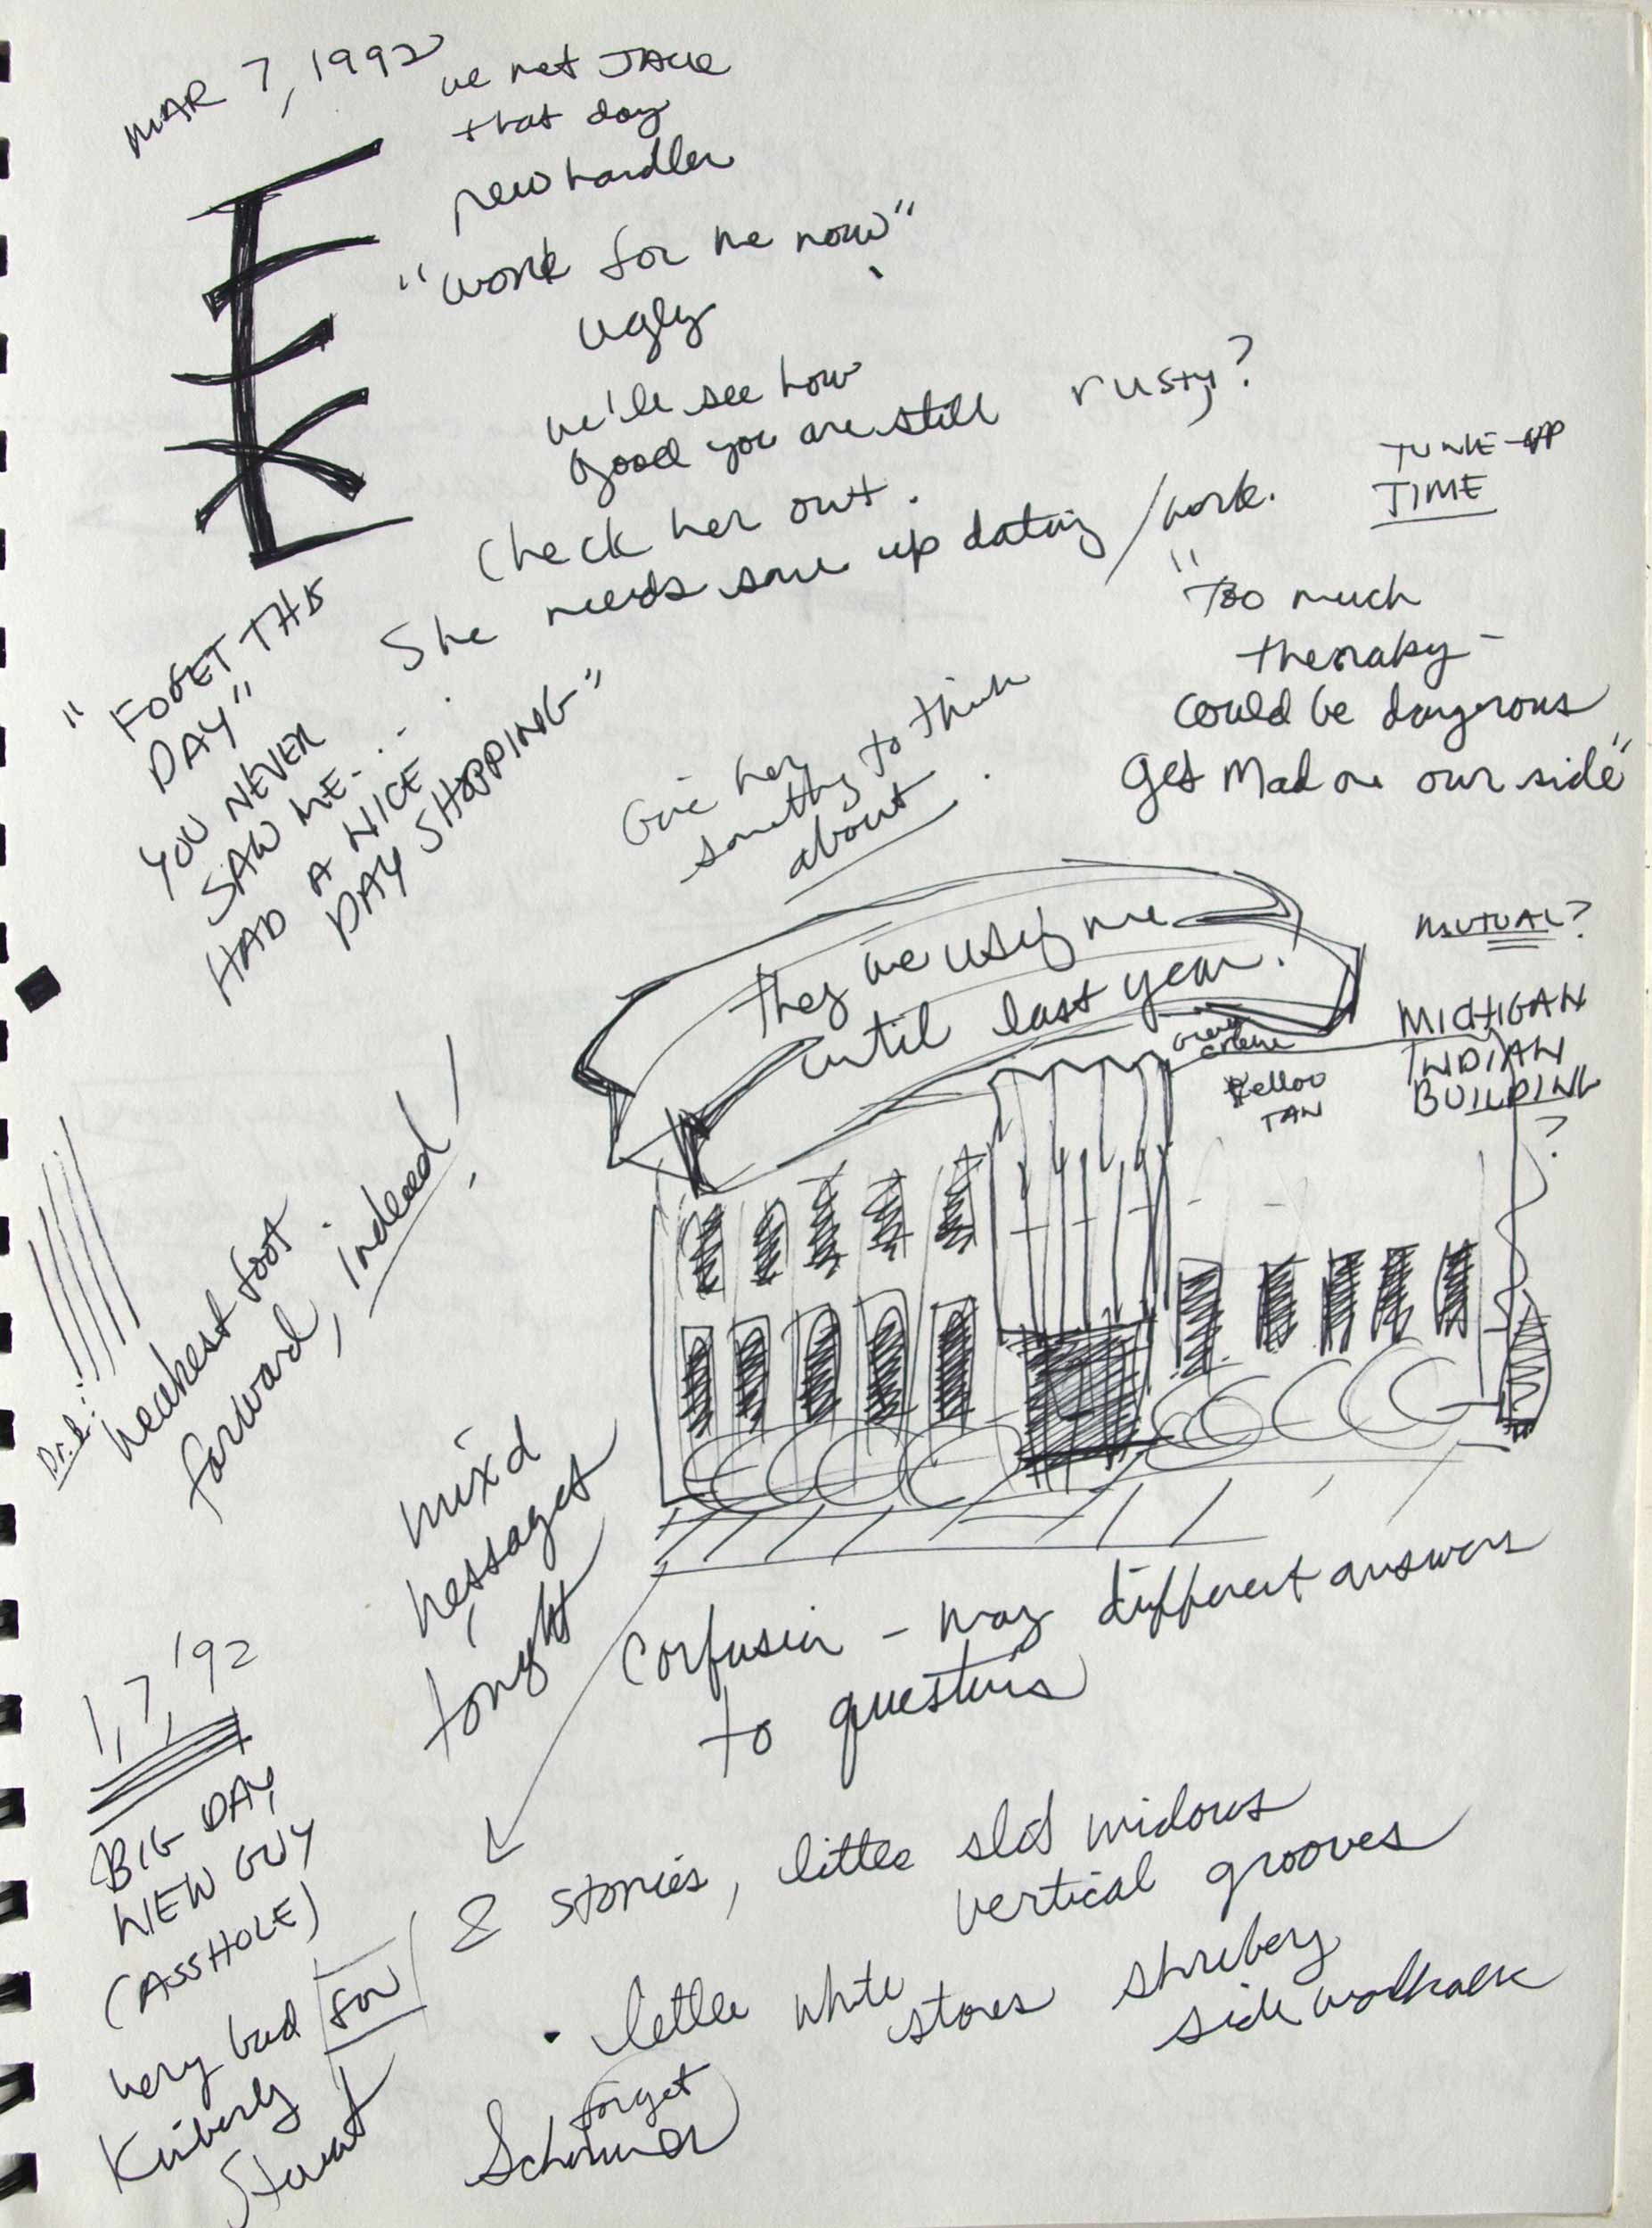 MAR 7, 1992
we met JACK
that day
new handler
"work for me now"
ugly
we'll see how
good you are still rusty?
Check her out.
She needs some up dating/work.
TUNE-UP
TIME
"too much
therapy -
could be dangerous
get Mad on our side"
"FOGET THE
DAY"
YOU NEVER
SAW ME...
HAD A NICE
DAY SHOPPING"
Give her
something to think
about.
they we using me
until last year!
MUTUAL?
MICHIGAN
INDIAN
BUILDING
?
TAN
weakest foot
forward, indeed!
mix'd
messages
tonight
Confusion - many different answers
to questions
1, 7, '92
BIG DAY
NEW GUY
(ASSHOLE)
very bad for
Kimberly
Stewart
2 stories, little slot widows
vertical grooves
little white stones
shrubery
side walk
forget